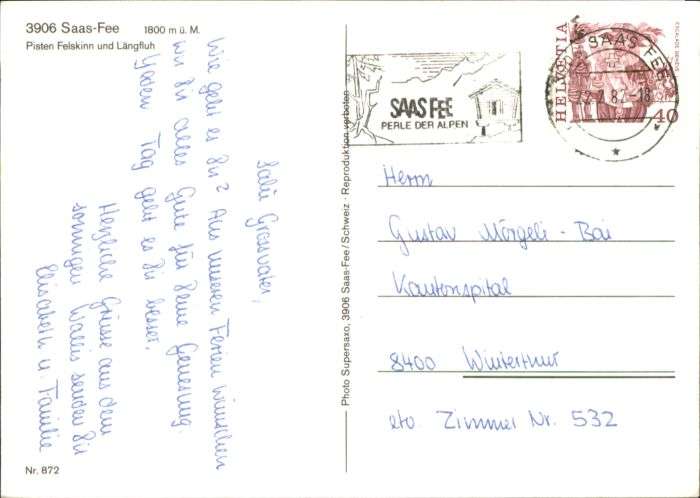 3906 Saas-Fee 1800 m ü. M.
Pisten Felskinn und Längfluh
Salü Grossvater,
Wie geht es Dir? Aus unseren Ferien wünschen
wir Dir alles Gute für Deine Genesung.
Jeden Tag geht es Dir besser.
Herzliche Grüsse aus dem
sonnigen Wallis senden Dir
Elisabeth u Familie
Nr. 872
Photo Supersaxo, 3906 Saas-Fee/Schweiz · Reproduktion verboten
SAAS FEE
PERLE DER ALPEN
SAAS-FEE
82-18
HELVETIA
ESCALADE GENÈVE
40
Herrn
Gustav Mörgeli-Bai
Kantonspital
8400 Winterthur
Zimmer Nr. 532